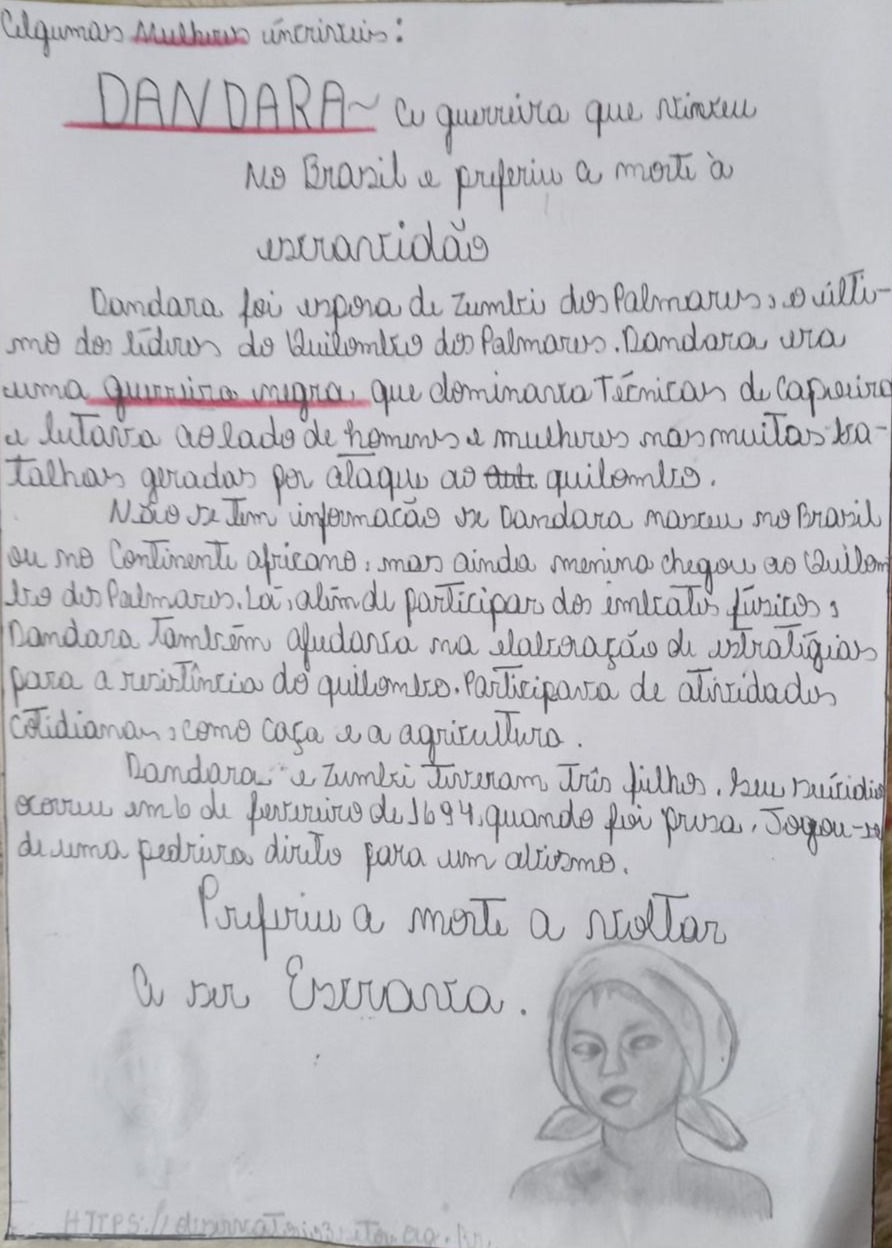 Algumas Mulheres incríveis:
DANDARA~ a guerreira que viveu
No Brasil e preferiu a morte à
escravidão
Dandara foi esposa de Zumbi dos Palmares, o últi-
mo dos líderes do Quilombo dos Palmares. Dandara era
uma guerreira negra, que dominava Técnicas de Capoeira
e lutava ao lado de homens e mulheres nas muitas ba-
talhas geradas por ataque ao quilombo.
Não se Tem informacão se Dandara nasceu no Brasil
ou no Continente africano, mas ainda menina chegou ao Quilom
bo dos Palmares. Lá, além de participar dos embates físicos,
Dandara Também ajudava na elaboração de estratégias
para a resistência do quilombo. Participava de atividades
cotidianas, como caça e a agricultura.
Dandara e Zumbi Tiveram Três filhos. Seu suicídio
ocorreu em 6 de fevereiro de 1694, quando foi presa. Jogou-se
de uma pedreira direto para um abismo.
Preferiu a morte a voltar
a ser Escrava.
HTTPS://